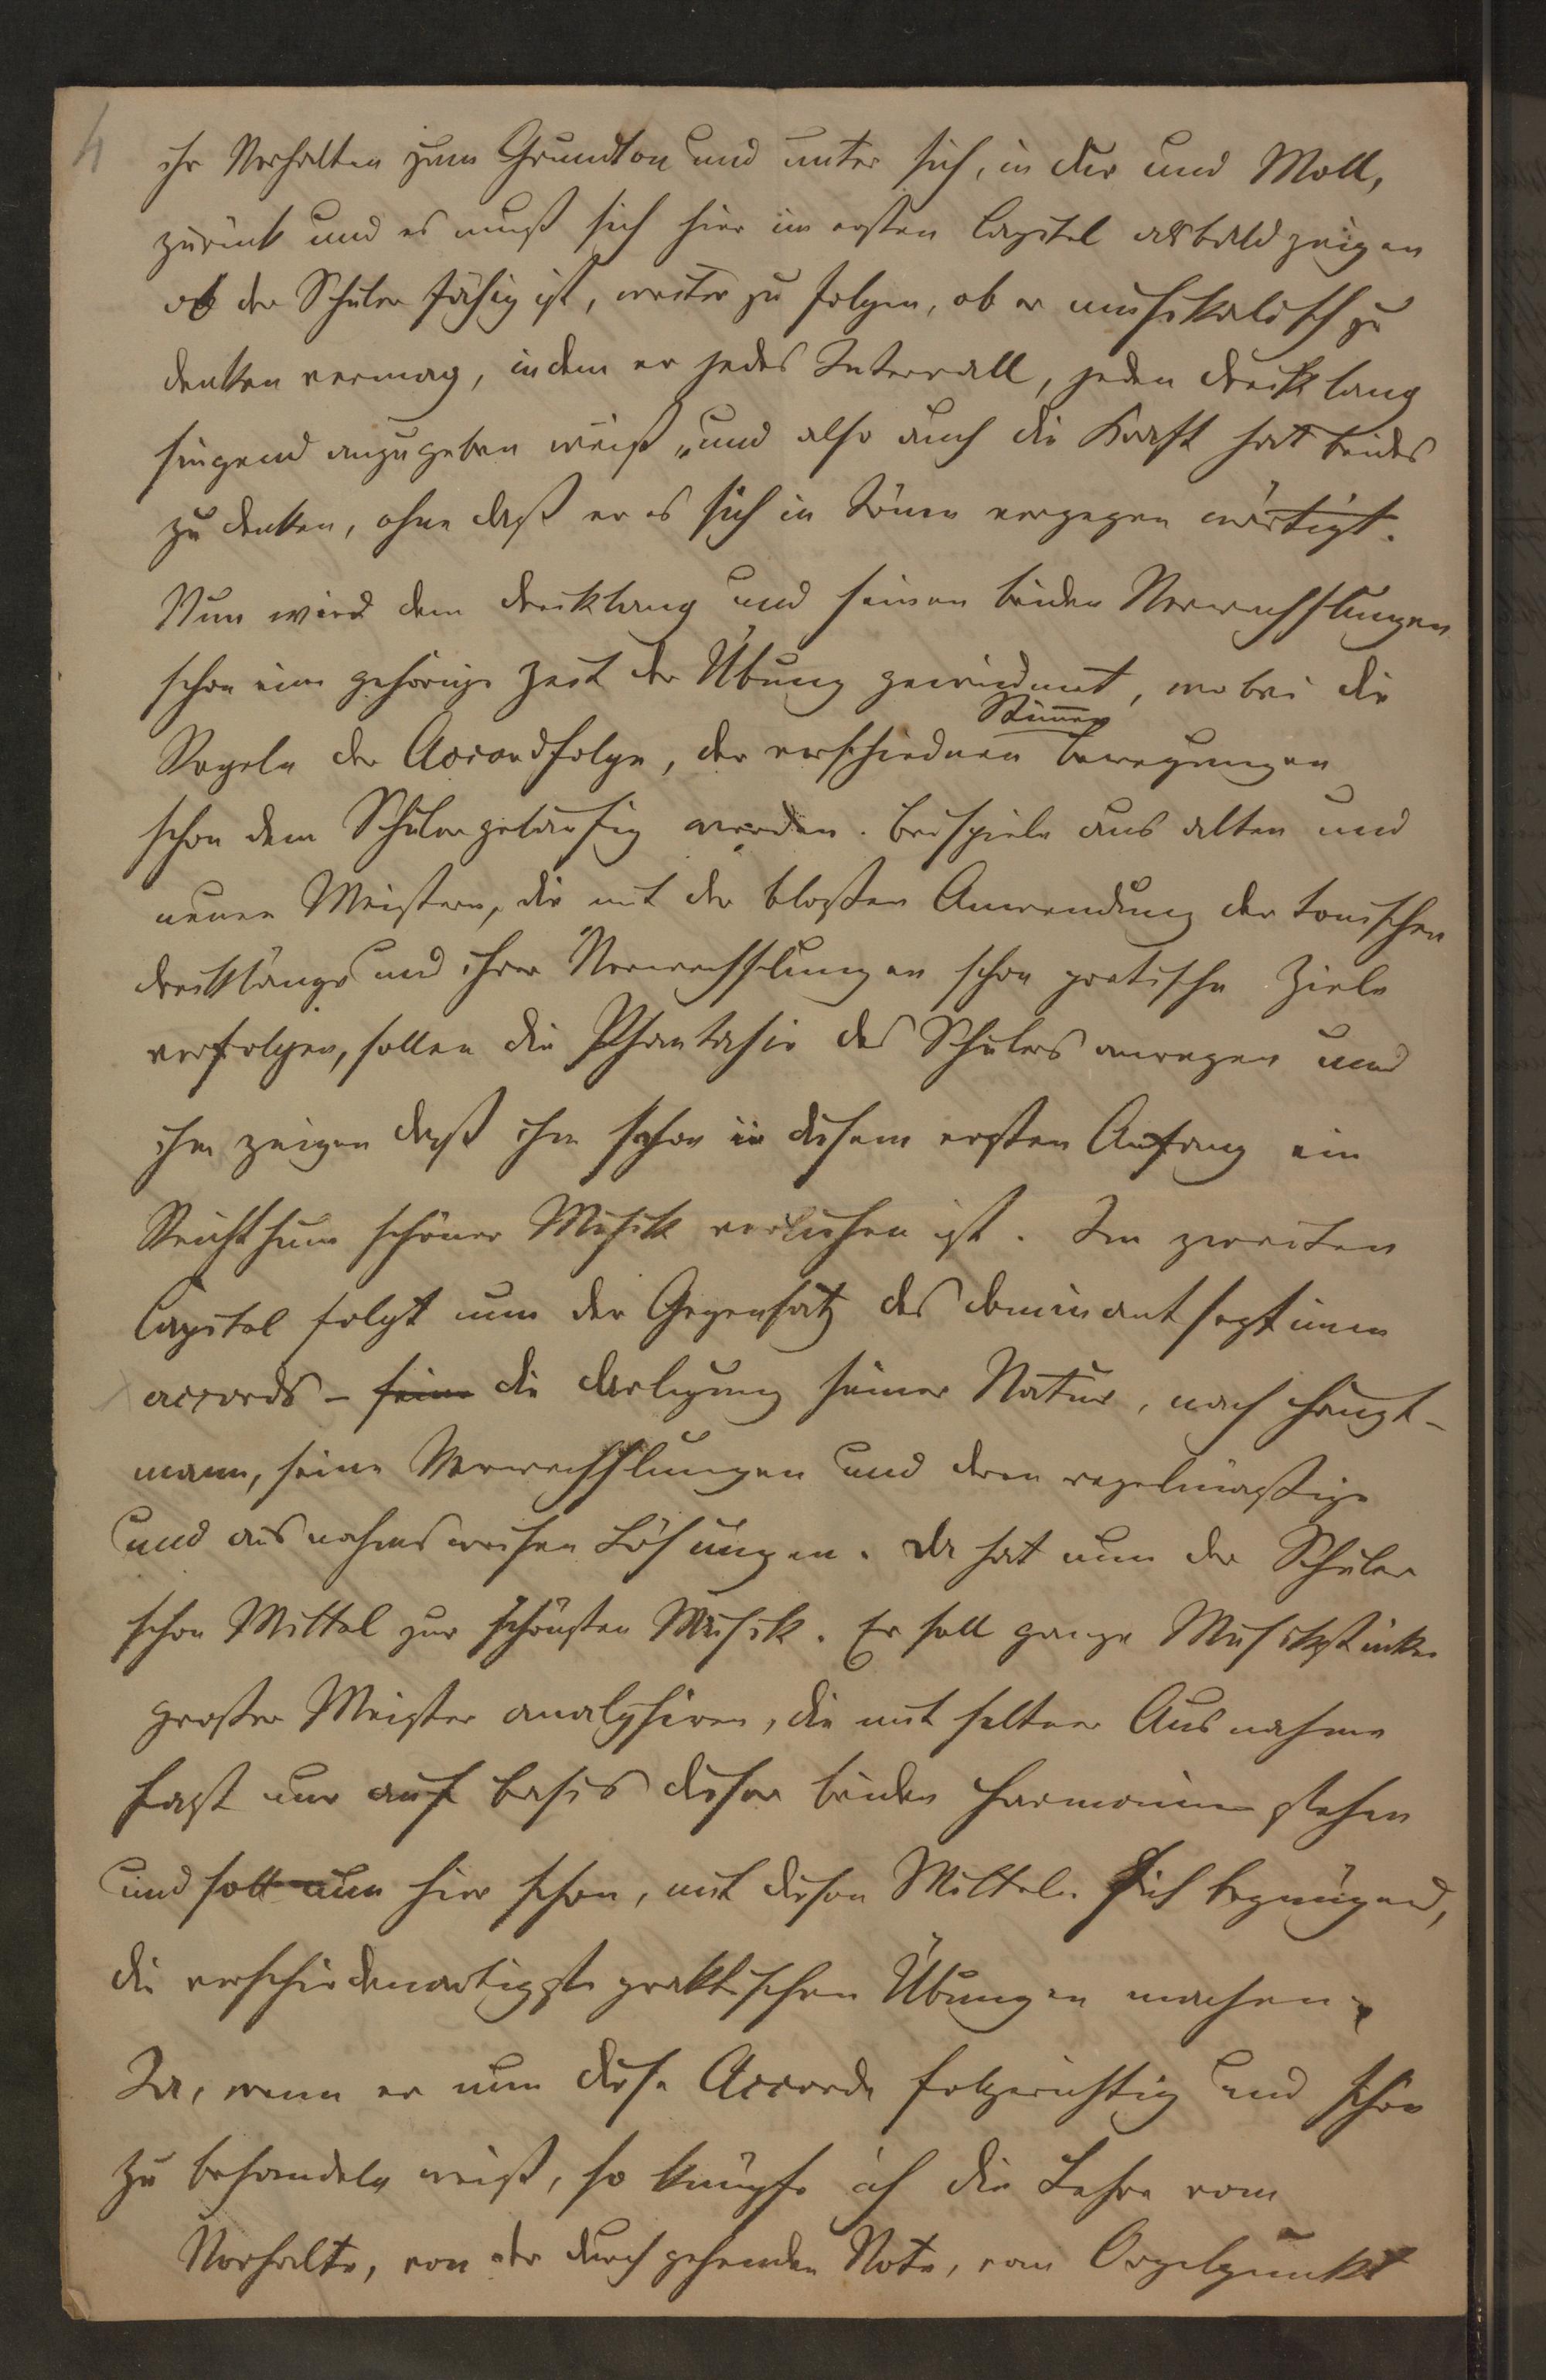 4
ihr Verhalten zum Grundton und unter sich, in Dur und Moll,
zurück und es muß sich hier im ersten Capitel alsbald zeigen
ob der Schüler fähig ist, weiter zu folgen, ob er musikalisch zu
denken vermag, indem er jedes Intervall, jeden Dreiklang
singend anzugeben weiß, und also auch die Kraft hat beides
zu denken, ohne daß er es sich in Tönen vergegenwärtigt.
Nun wird dem Dreiklang und seinen beiden Verwechslungen
schon eine gehörige Zeit der Übung gewidmet, wobei die
Regeln der Accordfolge, der verschiednen Stimmen bewegungen
schon dem Schüler geläufig werden. Beispiele aus alten und
neuen Meistern, die mit der bloßen Anwendung der tonischen
Dreiklänge und ihrer Verwechslungen schon poetische Ziele
verfolgen, sollen die Phantasie des Schülers anregen und
ihm zeigen daß ihm schon in diesem ersten Anfang ein
Reichthum schöner Musik verliehen ist. Im zweiten
Capitel folgt nun der Gegensatz des Dominantseptimen
accords – seine die Darlegung seiner Natur, nach Haupt-
mann, seine Verwechslungen und deren regelmäßige
und ausnahmsweisen Lösungen. Da hat nun der Schüler
schon Mittel zur schönsten Musik. Er soll ganze Musikstücke
großer Meister analysiren, die mit seltner Ausnahme
fast nur auf Basis dieser beiden Harmonien stehen
und soll nun hier schon, mit diesen Mitteln sich begnügend,
die verschiedenartigste praktischen Übungen machen.
Ja, wenn er nun diese Accorde folgerichtig und schön
zu behandeln weiß, so knüpfe ich die Lehre vom
Vorhalte, von der durchgehenden Note, vom Orgelpunkt